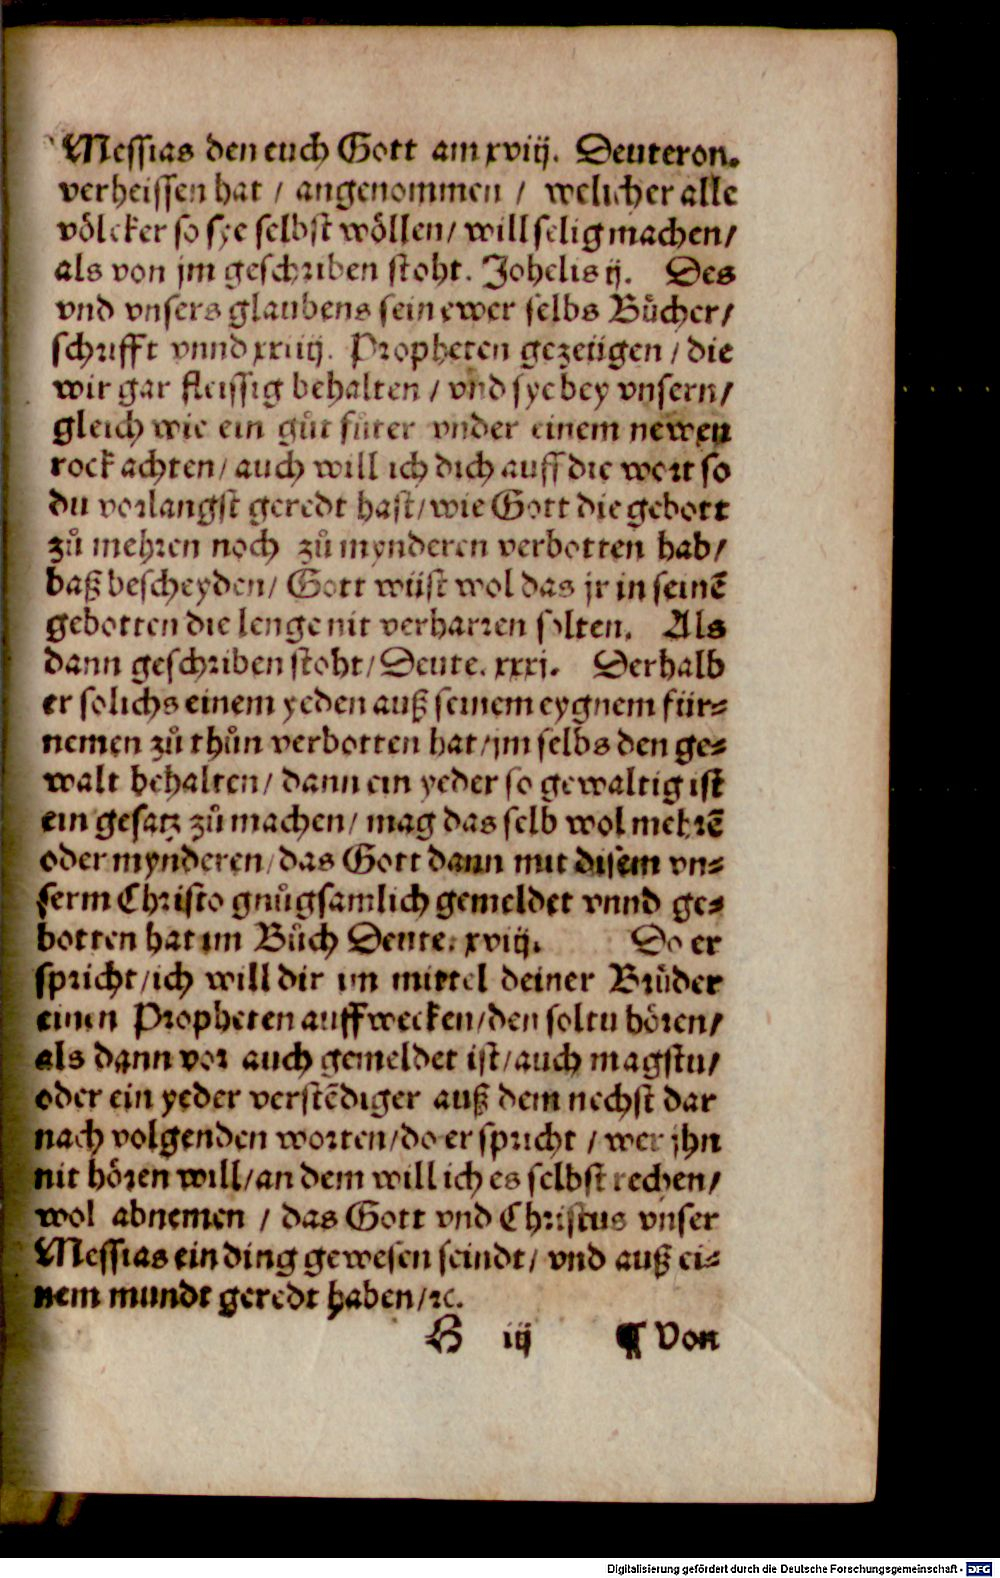 Messias den euch Gott am xviij. Deuteron.
verheissen hat / angenommen / welicher alle
völcker so sye selbst wöllen / will selig machen /
als von jm geschriben stoht. Johelis ij. Des
vnd vnsers glaubens sein ewer selbs Bůcher /
schrifft vnnd xxiiij. Propheten gezeügen / die
wir gar fleissig behalten / vnd sye bey vnsern /
gleich wie ein gůt fůter vnder einem newen
rock achten / auch will ich dich auff die wort so
du vorlangst geredt hast / wie Gott die gebott
zů mehren noch zů mynderen verbotten hab /
baß bescheyden / Gott wüst wol das jr in seinē
gebotten die lenge nit verharren solten. Als
dann geschriben stoht / Deute. xxxj. Derhalb
er solichs einem yeden auß seinem eygnem für-
nemen zů thůn verbotten hat / jm selbs den ge-
walt behalten / dann ein yeder so gewaltig ist
ein gesatz zů machen / mag das selb wol mehrē
oder mynderen / das Gott dann mit disem vn-
serm Christo gnůgsamlich gemeldet vnnd ge-
botten hat im Bůch Deute. xviij. Do er
spricht / ich will dir im mittel deiner Brůder
einen Propheten auffwecken / den soltu hören /
als dann vor auch gemeldet ist / auch magstu /
oder ein yeder verstēdiger auß dem nechst dar
nach volgenden worten / do er spricht / wer jhn
nit hören will / an dem will ich es selbst rechen /
wol abnemen / das Gott vnd Christus vnser
Messias ein ding gewesen seindt / vnd auß ei-
nem mundt geredt haben / ꝛc.
B iij ¶ Von
Digitalisierung gefördert durch die Deutsche Forschungsgemeinschaft - DFG